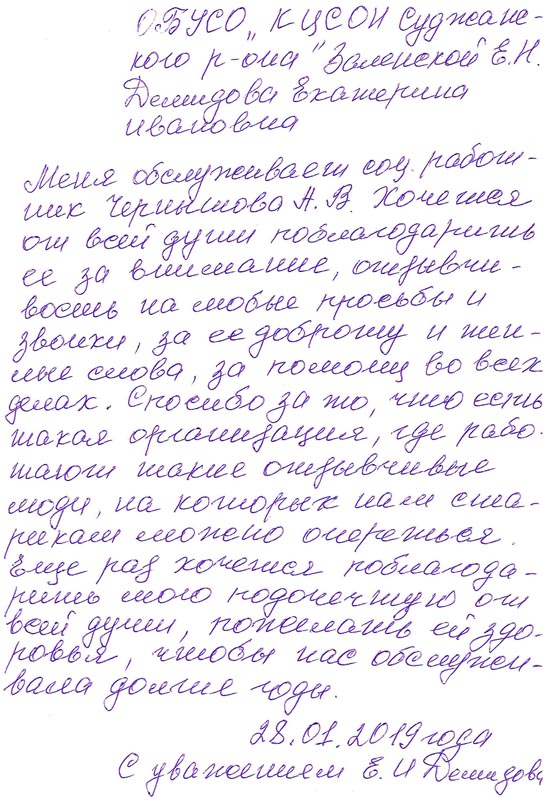 ОБУСО „КЦСОН Суджанс-
кого р-она" Заленской Е.Н.
Демидова Екатерина
Ивановна
Меня обслуживает соц. работ-
ник Чернышова А.В. Хочется
от всей души поблагодарить
ее за внимание, отзывчи-
вость на любые просьбы и
звонки, за ее доброту и теп-
лые слова, за помощь во всех
делах. Спосибо за то, что есть
такая организация, где рабо-
тают такие отзывчивые
люди, на которых нам ста-
рикам можно опереться.
Еще раз хочется поблагода-
рить мою подопечную от
всей души, пожелать ей здо-
ровья, чтобы нас обслужи-
вала долгие годы.
28.01.2019 года
С уважением Е. И Демидова